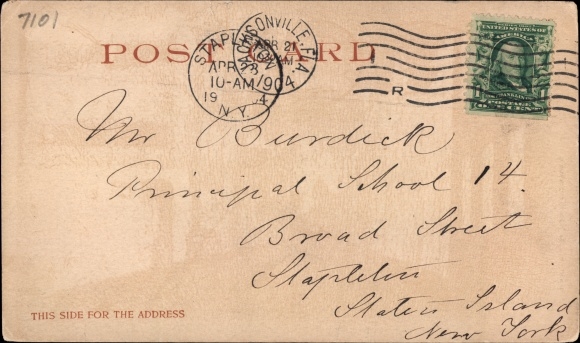 7101
POST CARD
JACKSONVILLE, FLA.
APR 21
STAPLETON
APR 23
10-AM
1904
N.Y.
R
UNITED STATES OF AMERICA
FRANKLIN
POSTAGE
ONE CENT
Mr Burdick
Principal School 14.
Broad Street
Stapleton
Staten Island
New York
THIS SIDE FOR THE ADDRESS